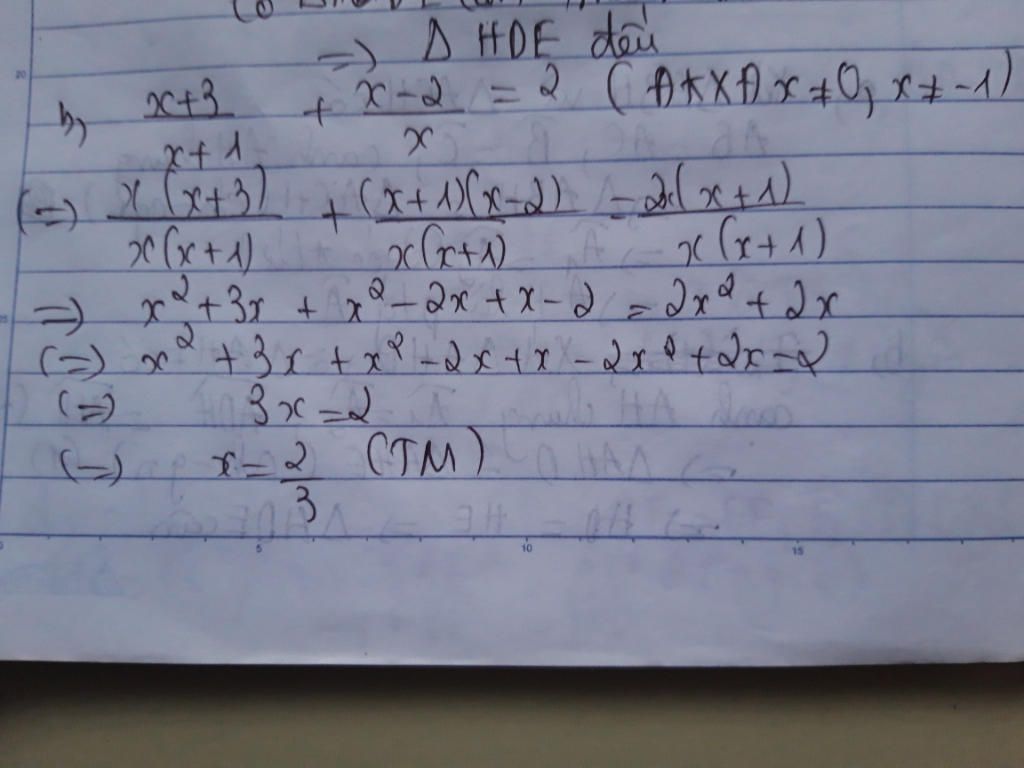 => Δ HDE đều
b, x+3/x+1 + x-2/x = 2 (ĐKXĐ x ≠ 0, x ≠ -1)
(=) x(x+3)/x(x+1) + (x+1)(x-2)/x(x+1) = 2x(x+1)/x(x+1)
=> x² + 3x + x² - 2x + x - 2 = 2x² + 2x
(=) x² + 3x + x² - 2x + x - 2x² + 2x = 2
(=) 3x = 2
(=) x = 2/3 (TM)
20
5
10
15